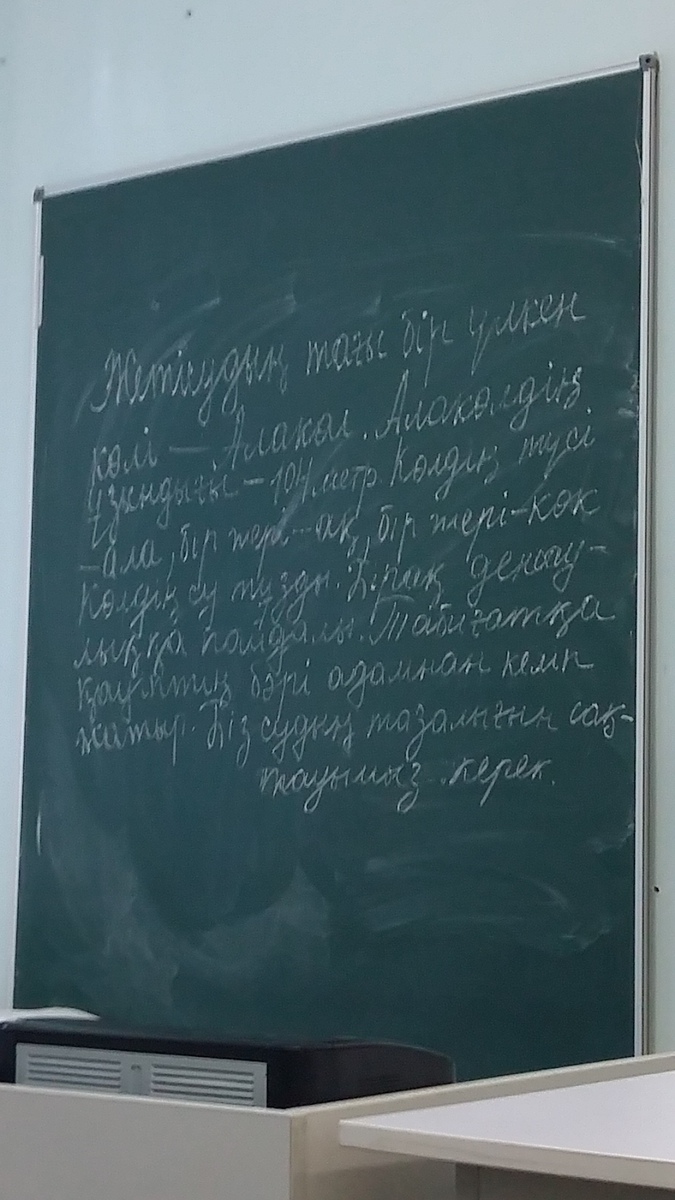 Жетісудың тағы бір үлкен
көлі — Алакөл. Алакөлдің
ұзындығы — 104 метр. Көлдің түсі
-ала, бір жері — ақ, бір жері — көк
Көлдің су тұзды. Бірақ денсау-
лыққа пайдалы. Табиғатқа
қауіптің бәрі адамнан келіп
жатыр. Біз судың тазалығын сақ-
тауымыз керек.